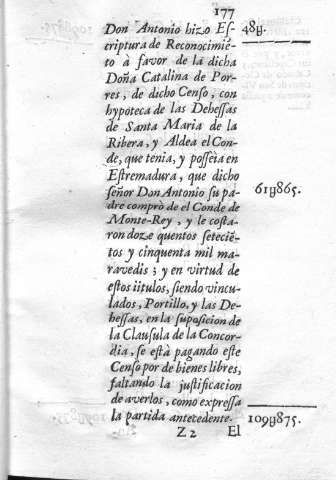 177
Don Antonio hizo Es- 48y.
criptura de Reconocimiē-
to à favor de la dicha
Doña Catalina de Por-
res, de dicho Censo, con
hypoteca de las Dehessas
de Santa Maria de la
Ribera, y Aldea el Con-
de, que tenia, y posseìa en
Estremadura, que dicho
señor Don Antonio su pa- 61y865.
dre comprò de el Conde de
Monte-Rey, y le costa-
ron doze quentos seteciē-
tos y cinquenta mil ma-
ravedis; y en virtud de
estos iitulos, siendo vincu-
lados, Portillo, y las De-
hessas, en la suposicion de
la Clausula de la Concor-
dia, se està pagando este
Censo por de bienes libres,
faltando la justificacion
de averlos, como expressa
la partida antecedente. 109y875.
Z 2 El